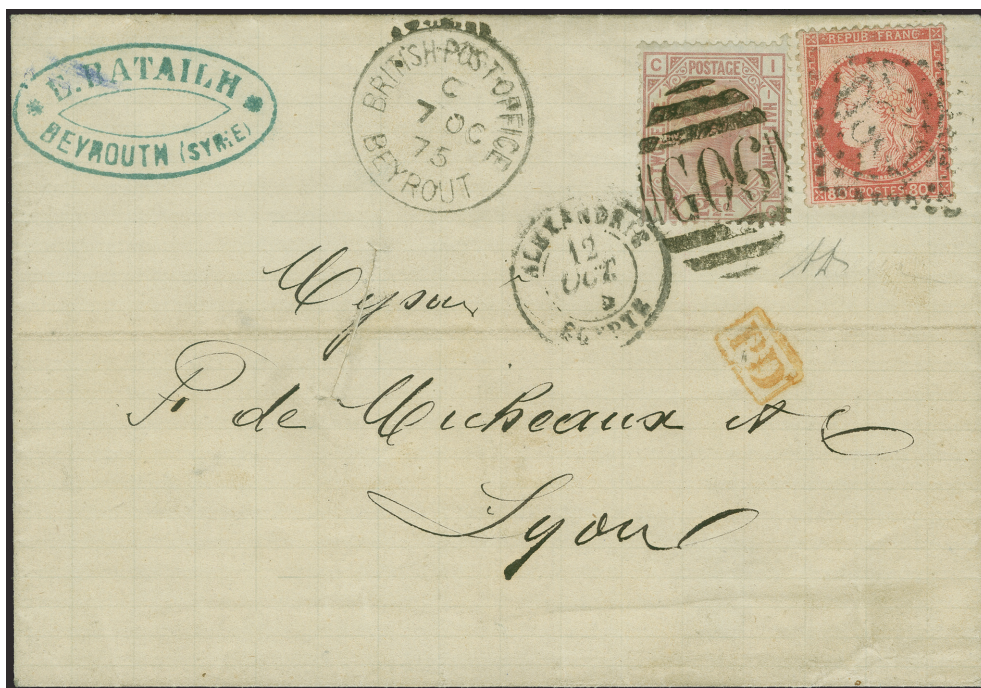 E. BATAILH
BEYROUTH (SYRIE)
BRITISH-POST-OFFICE
C
7 OC
75
BEYROUT
C POSTAGE I
G06
REPUB. FRANC.
80 C POSTES 80
ALEXANDRIE
12
OCT.
5
EGYPTE
P.D
Messrs
P. de Micheaux et C
Lyon